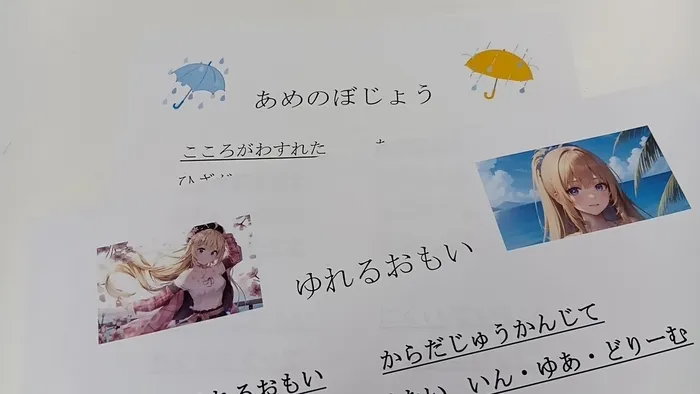 あめのぼじょう
こころがわすれた
ゆれるおもい
からだじゅうかんじて
れるおもい
いん・ゆあ・どりーむ